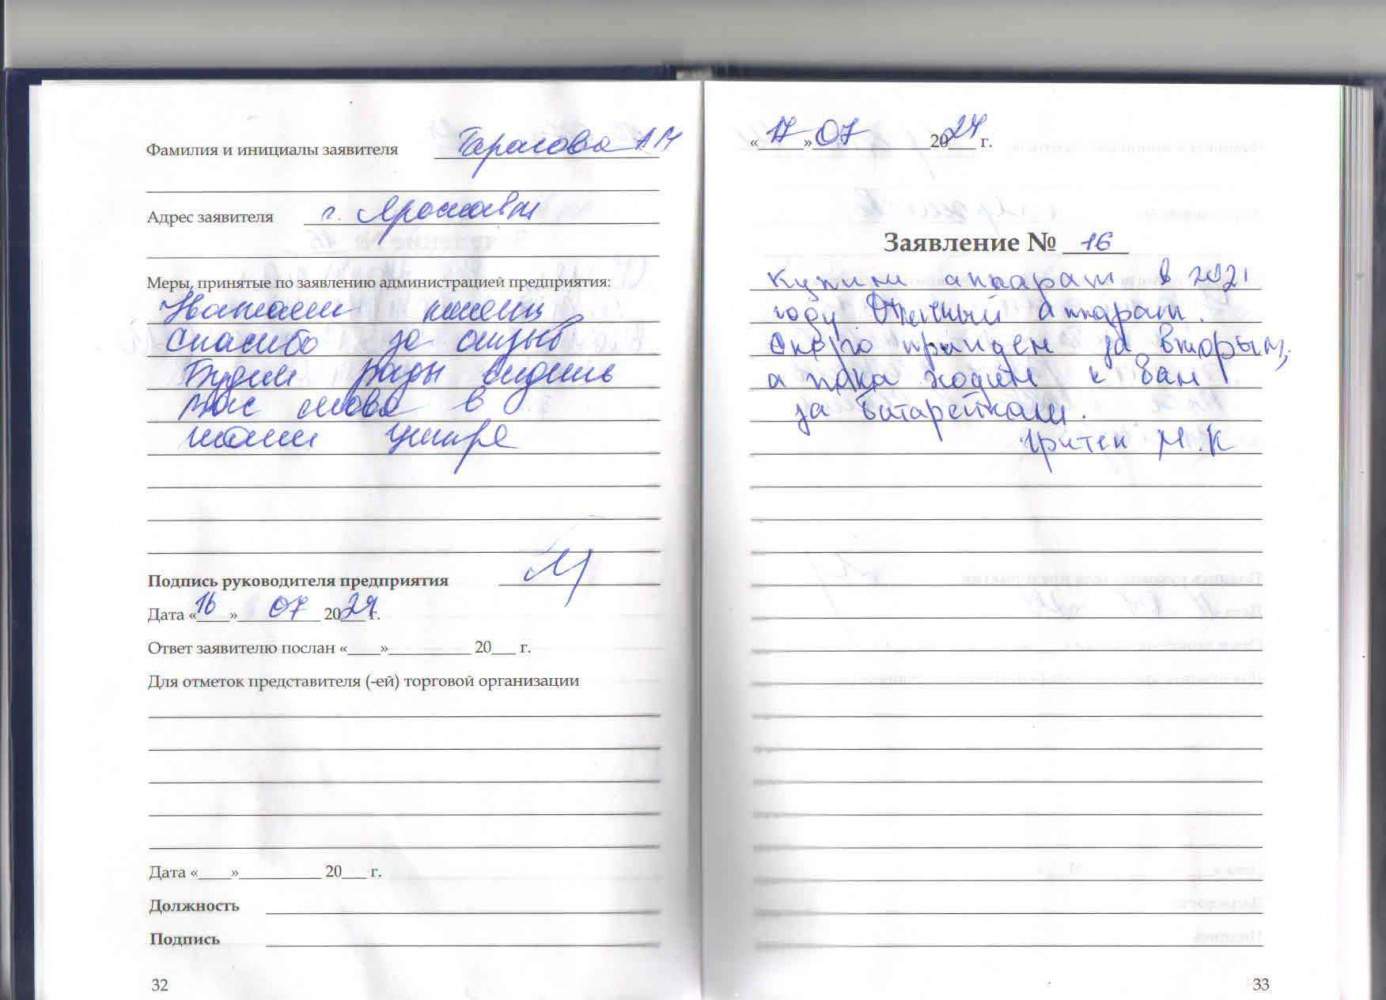 Фамилия и инициалы заявителя Тарасова А М
Адрес заявителя г. Ярославль
Меры, принятые по заявлению администрацией предприятия:
Спасибо за отзыв
Будем рады видеть
Вас снова в
нашем центре
Подпись руководителя предприятия
Дата «16» 07 2024 г.
Ответ заявителю послан «____»__________ 20___ г.
Для отметок представителя (-ей) торговой организации
Дата «____»__________ 20___ г.
Должность
Подпись
32
«17» 07 2024 г.
Заявление № 16
Купили аппарат в 2021
году. Отличный аппарат.
Скоро прийдем за вторым,
а пока ходим к вам
за батарейками.
М.К
33